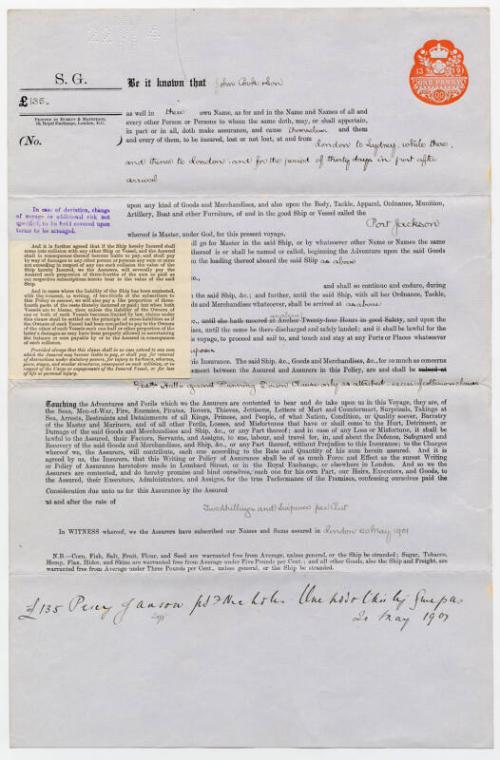 S. G.
£135.
PRINTED & SOLD BY
Royal Exchange, London, E.C.
(No. )
Be it known that John Cook & Son
ONE PENNY
as well in their own Name, as for and in the Name and Names of all and
every other Person or Persons to whom the same doth, may, or shall appertain,
in part or in all, doth make assurance, and cause themselves and them
and every of them, to be insured, lost or not lost, at and from
London to Sydney, while there,
and thence to London and for the period of thirty days in port after
arrival
In case of deviation, change
of voyage or additional risk not
specified, to be held covered upon
terms to be arranged.
upon any kind of Goods and Merchandises, and also upon the Body, Tackle, Apparel, Ordnance, Munition,
Artillery, Boat and other Furniture, of and in the good Ship or Vessel called the
Port Jackson
whereof is Master, under God, for this present voyage,
And it is further agreed that if the Ship hereby Insured shall
come into collision with any other Ship or Vessel, and the Assured
shall in consequence thereof become liable to pay, and shall pay
by way of damages to any other person or persons any sum or sums
not exceeding in respect of any one such collision the value of the
Ship hereby Insured, we the Assurers, will severally pay the
Assured such proportion of three-fourths of the sum so paid as
our respective subscriptions hereto bear to the value of the said
Ship.
And in cases where the liability of the Ship has been contested,
with the consent, in writing, of two-thirds of the subscribers to
this Policy in amount, we will also pay a like proportion of three-
fourths parts of the costs thereby incurred or paid; but when both
Vessels are to blame, then unless the liability of the Owners of
one or both of such Vessels becomes limited by law, claims under
this clause shall be settled on the principle of cross-liabilities as if
the Owners of each Vessel had been compelled to pay to the Owners
of the other of such Vessels such one-half or other proportion of the
latter's damages as may have been properly allowed in ascertaining
the balance or sum payable by or to the Assured in consequence
of such collision.
Provided always that this clause shall in no case extend to any sum
which the Assured may become liable to pay, or shall pay, for removal
of obstructions under statutory powers, for injury to harbours, wharves,
piers, stages, and similar structures, consequent on such collision; or in
respect of the Cargo or engagements of the Insured Vessel, or for loss
of life or personal injury.
all go for Master in the said Ship, or by whatsoever other Name or Names the same
thereof is or shall be named or called, beginning the Adventure upon the said Goods
the loading thereof aboard the said Ship as above
and shall so continue and endure, during
the said Ship, &c.; and further, until the said Ship, with all her Ordnance, Tackle,
and Merchandises whatsoever, shall be arrived at as above
until she hath moored at Anchor Twenty-four Hours in good Safety, and upon the
ises, until the same be there discharged and safely landed; and it shall be lawful for the
voyage, to proceed and sail to, and touch and stay at any Ports or Places whatsoever
his Insurance. The said Ship, &c., Goods and Merchandises, &c., for so much as concerns
ment between the Assured and Assurers in this Policy, are and shall be valued at
Touching the Adventures and Perils which we the Assurers are contented to bear and do take upon us in this Voyage, they are, of
the Seas, Men-of-War, Fire, Enemies, Pirates, Rovers, Thieves, Jettisons, Letters of Mart and Countermart, Surprisals, Takings at
Sea, Arrests, Restraints and Detainments of all Kings, Princes, and People, of what Nation, Condition, or Quality soever, Barratry
of the Master and Mariners, and of all other Perils, Losses, and Misfortunes that have or shall come to the Hurt, Detriment, or
Damage of the said Goods and Merchandises and Ship, &c., or any Part thereof; and in case of any Loss or Misfortune, it shall be
lawful to the Assured, their Factors, Servants, and Assigns, to sue, labour, and travel for, in, and about the Defence, Safeguard and
Recovery of the said Goods and Merchandises, and Ship, &c., or any Part thereof, without Prejudice to this Insurance; to the Charges
whereof we, the Assurers, will contribute, each one according to the Rate and Quantity of his sum herein assured. And it is
agreed by us, the Insurers, that this Writing or Policy of Assurance shall be of as much Force and Effect as the surest Writing
or Policy of Assurance heretofore made in Lombard Street, or in the Royal Exchange, or elsewhere in London. And so we the
Assurers are contented, and do hereby promise and bind ourselves, each one for his own Part, our Heirs, Executors, and Goods, to
the Assured, their Executors, Administrators, and Assigns, for the true Performance of the Premises, confessing ourselves paid the
Consideration due unto us for this Assurance by the Assured
at and after the rate of
Two shillings and sixpence per Cent
In WITNESS whereof, we the Assurers have subscribed our Names and Sums assured in London 20 May 1901
N.B.—Corn, Fish, Salt, Fruit, Flour, and Seed are warranted free from Average, unless general, or the Ship be stranded; Sugar, Tobacco,
Hemp, Flax, Hides, and Skins are warranted free from Average under Five Pounds per Cent.; and all other Goods, also the Ship and Freight, are
warranted free from Average under Three Pounds per Cent., unless general, or the Ship be stranded.
£135 Percy Janson
20 May 1901